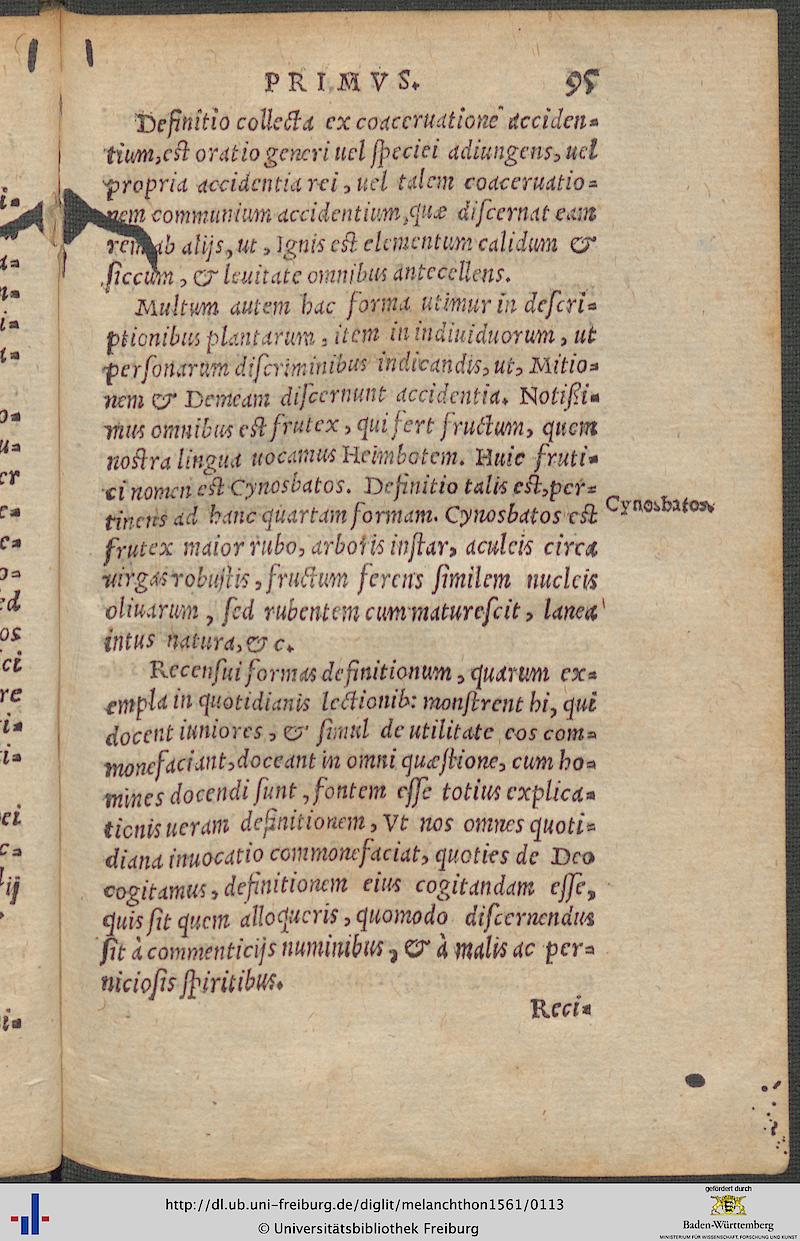 PRIMVS. 95
Definitio collecta ex coaceruatione acciden=
tium, est oratio generi uel speciei adiungens, uel
propria accidentia rei, uel talem coaceruatio=
nem communium accidentium, quæ discernat eam
rem ab alijs, ut, Ignis est elementum calidum &
siccum, & leuitate omnibus antecellens.
Multum autem hac forma utimur in descri=
ptionibus plantarum, item in indiuiduorum, ut
personarum discriminibus indicandis, ut, Mitio=
nem & Demeam discernunt accidentia. Notißi=
mus omnibus est frutex, qui fert fructum, quem
nostra lingua uocamus Heimbotem. Huic fruti=
ci nomen est Cynosbatos. Definitio talis est, per=
tinens ad hanc quartam formam. Cynosbatos est
Cynosbatos.
frutex maior rubo, arboris instar, aculeis circa
uirgas robustis, fructum ferens similem nucleis
oliuarum, sed rubentem cum maturescit, lanea
intus natura, & c.
Recensui formas definitionum, quarum ex=
empla in quotidianis lectionib: monstrent hi, qui
docent iuniores, & simul de utilitate eos com=
monefaciant, doceant in omni quæstione, cum ho=
mines docendi sunt, fontem esse totius explica=
tionis ueram definitionem, Vt nos omnes quoti=
diana inuocatio commonefaciat, quoties de Deo
cogitamus, definitionem eius cogitandam esse,
quis sit quem alloqueris, quomodo discernendus
sit à commenticijs numinibus, & à malis ac per=
niciosis spiritibus.
Reci=
http://dl.ub.uni-freiburg.de/diglit/melanchthon1561/0113
© Universitätsbibliothek Freiburg
gefördert durch
Baden-Württemberg
MINISTERIUM FÜR WISSENSCHAFT, FORSCHUNG UND KUNST